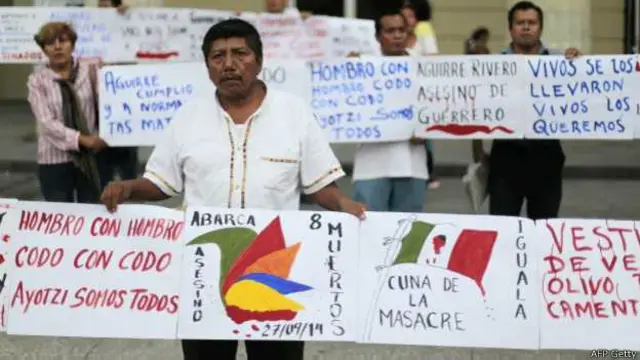 AGUIRRE CUMPLIO
Y A NORMA
TAS MAT
HOMBRO CON
HOMBRO CODO
CON CODO
AYOTZI SOMOS
TODOS
AGUIRRE RIVERO
ASESINO DE
GUERRERO
VIVOS SE LOS
LLEVARON
VIVOS LOS
QUEREMOS
HOMBRO CON HOMBRO
CODO CON CODO
AYOTZI SOMOS TODOS
ABARCA
ASESINO
8 MUERTOS
27/09/14
CUNA DE
LA
MASACRE
IGUALA
VESTI
DE VE
OLIVO
CAMENT
AFP Getty